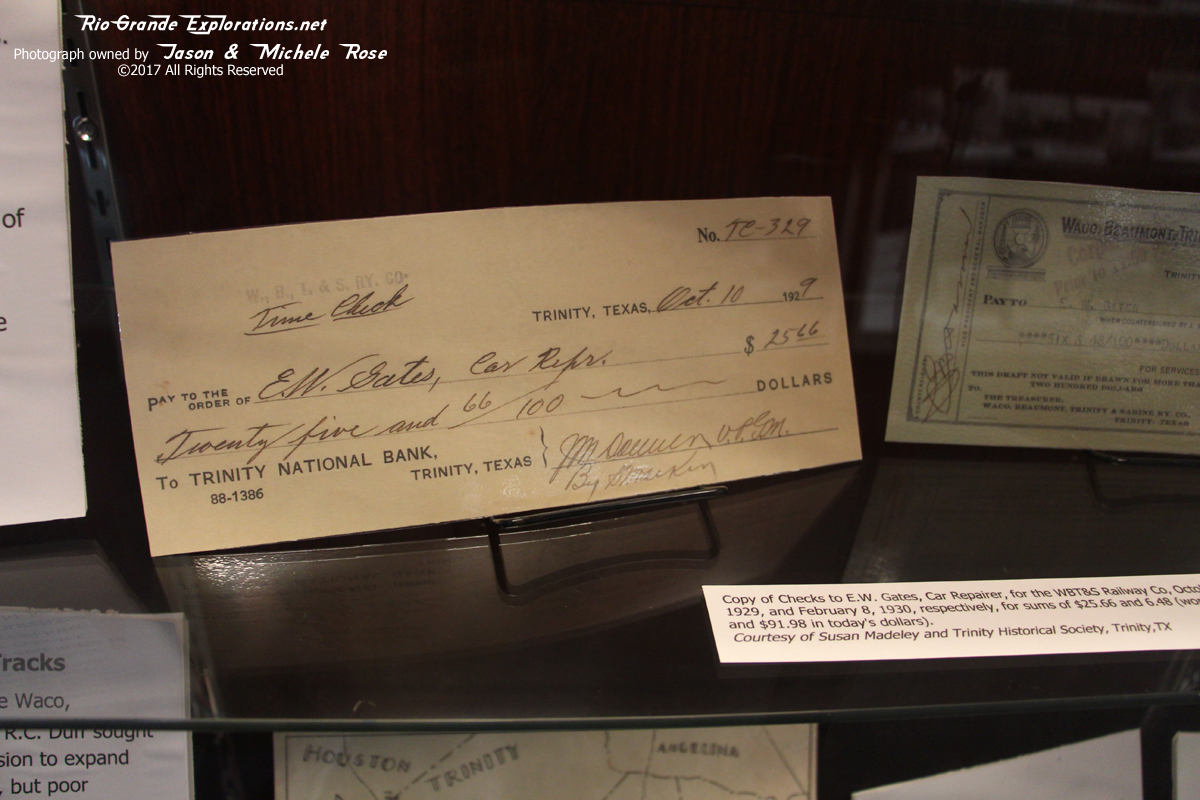 Rio Grande Explorations.net
Photograph owned by Jason & Michele Rose
©2017 All Rights Reserved
of
e
No. TC-329
W., B., T. & S. RY. CO.
Time Check
TRINITY, TEXAS, Oct. 10 1929
PAY TO THE ORDER OF E.W. Gates, Car Repr. $ 25 66
Twenty five and 66/100 DOLLARS
To TRINITY NATIONAL BANK,
TRINITY, TEXAS
88-1386
V.P.&G.M.
By
WACO, BEAUMONT, TRIN
TRINITY
PAY TO
WHEN COUNTERSIGNED BY
****SIX & 48/100****DOLLA
FOR SERVICES
THIS DRAFT NOT VALID IF DRAWN FOR MORE THA
TWO HUNDRED DOLLARS
TO.
THE TREASURER:
WACO, BEAUMONT, TRINITY & SABINE RY. CO.
TRINITY, TEXAS
Copy of Checks to E.W. Gates, Car Repairer, for the WBT&S Railway Co, Octo
1929, and February 8, 1930, respectively, for sums of $25.66 and 6.48 (wor
and $91.98 in today's dollars).
Courtesy of Susan Madeley and Trinity Historical Society, Trinity,TX
Tracks
e Waco,
R.C. Duff sought
sion to expand
, but poor
HOUSTON
TRINITY
ANGELINA